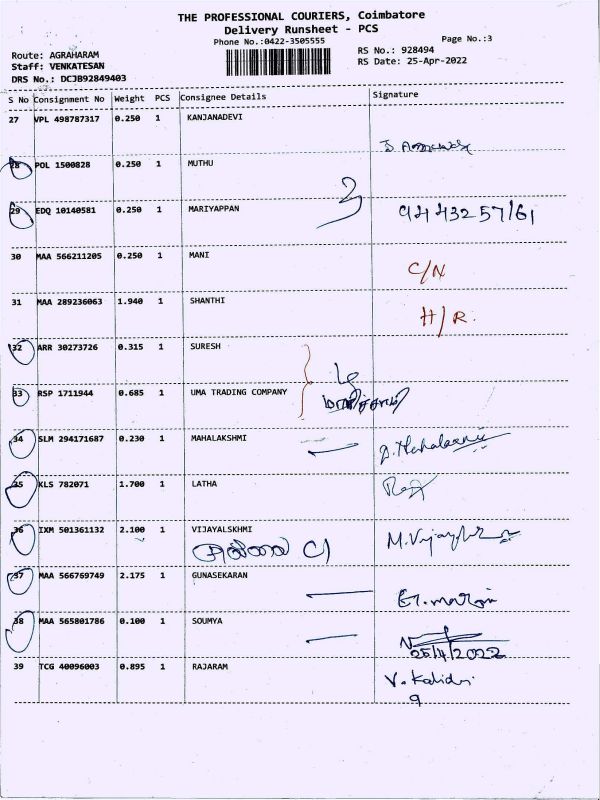 THE PROFESSIONAL COURIERS, Coimbatore
Delivery Runsheet - PCS
Phone No.:0422-3505555
Page No.:3
Route: AGRAHARAM
RS No.: 928494
Staff: VENKATESAN
RS Date: 25-Apr-2022
DRS No.: DCJB92849403
S No Consignment No Weight PCS Consignee Details Signature
27 VPL 498787317 0.250 1 KANJANADEVI
28 POL 1500828 0.250 1 MUTHU
29 EDQ 10140581 0.250 1 MARIYAPPAN 9443257161
30 MAA 566211205 0.250 1 MANI C/N
31 MAA 289236063 1.940 1 SHANTHI H/R.
32 ARR 30273726 0.315 1 SURESH
33 RSP 1711944 0.685 1 UMA TRADING COMPANY
34 SLM 294171687 0.230 1 MAHALAKSHMI
35 KLS 782071 1.700 1 LATHA
36 IXM 501361132 2.100 1 VIJAYALSKHMI
37 MAA 566769749 2.175 1 GUNASEKARAN
38 MAA 565801786 0.100 1 SOUMYA
25/4/2022
39 TCG 40096003 0.895 1 RAJARAM
9